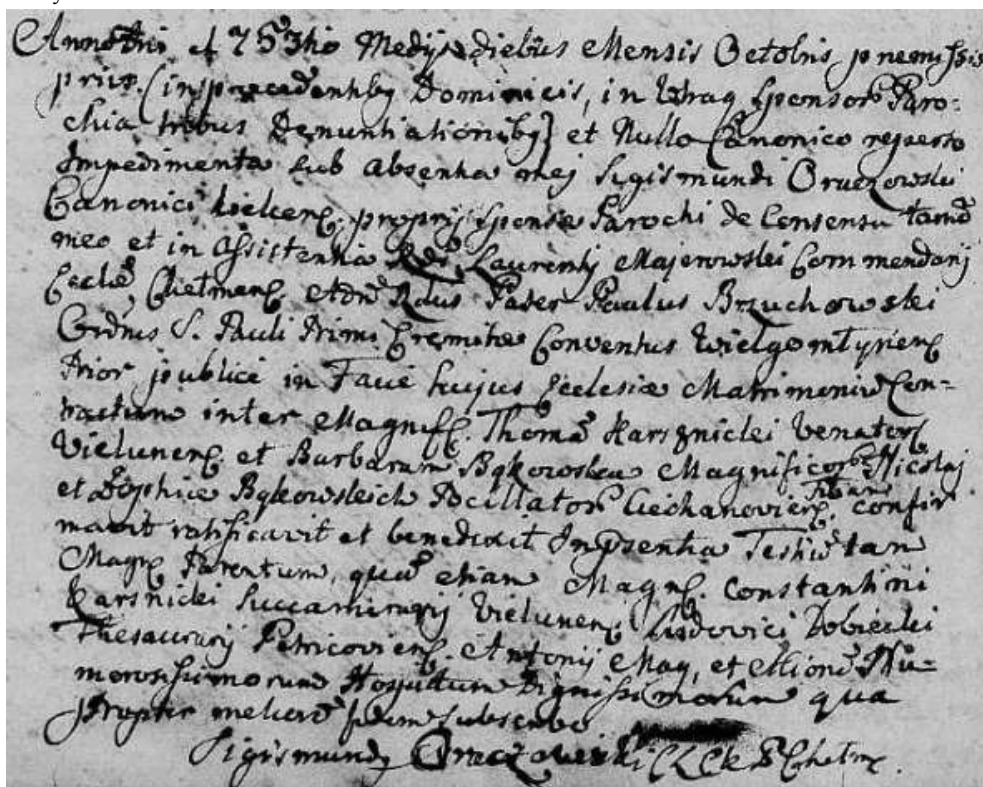 Anno Dni 1753tio Medijs diebus Mensis Octobris, praemissis
prius (in praecedentibg Dominicis, in utraq Sponsor Paro-
chia tribus Denuntiationibg) et Nullo Canonico reperto
Impedimento sub absentia mej Sigismundi Oraczowski
Canonici Kielcen. proprij Sponsae Parochi de Consensu tamē
meo et in assistentia Rdi Laurentij Majerowski Commendarij
Eccliae Chelmen. Rdus Pater Paulus Brzuchowski
Ordinis S. Pauli Primi Eremitae Conventus Wielgomłynen
Prior publice in Facie hujus Ecclesiae Matrimoniū Con-
tractum inter Magnif. Thomā Karsznicki Venator
Vielunen. et Barbaram Bąkowska Magnificor Nicolaj
et Sophiae Bąkowskich Pocillator Ciechanovien. Filiam confir
mavit ratificavit et benedixit In psentia Testiū tam
Magn Parentum, quā etiam Magn. Constantini
Karsnicki Succamerarij Vielunen Ludovici Dobiecki
Thesaurarij Petricovien. Antonij Mag, et Nu-
merosissimorum Hospitum Dignissimorum qua
propter meliorē fidem subscribo
Sigismundg Oraczowski CK P Chelm.